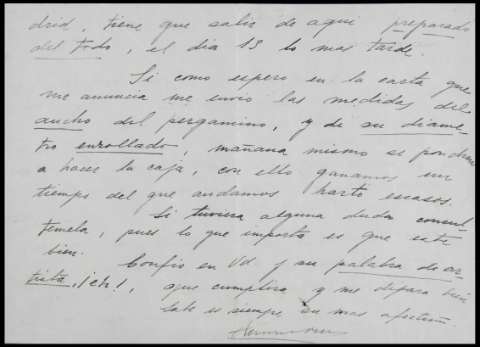 drid, tiene que salir de aqui preparado
del todo, el dia 13 lo mas tarde.
Si como espero en la carta que
me anuncia me envio las medidas del
ancho del pergamino, y de su diame-
tro enrollado, mañana mismo se pondran
a hacer la caja, con ello ganamos un
tiempo del que andamos harto escasos.
Si tuviera alguna duda consul-
temela, pues lo que importa es que este
bien.
Confio en Vd. y su palabra de ar-
tista, ¡eh!, que cumplira y me
sabe es siempre su mas